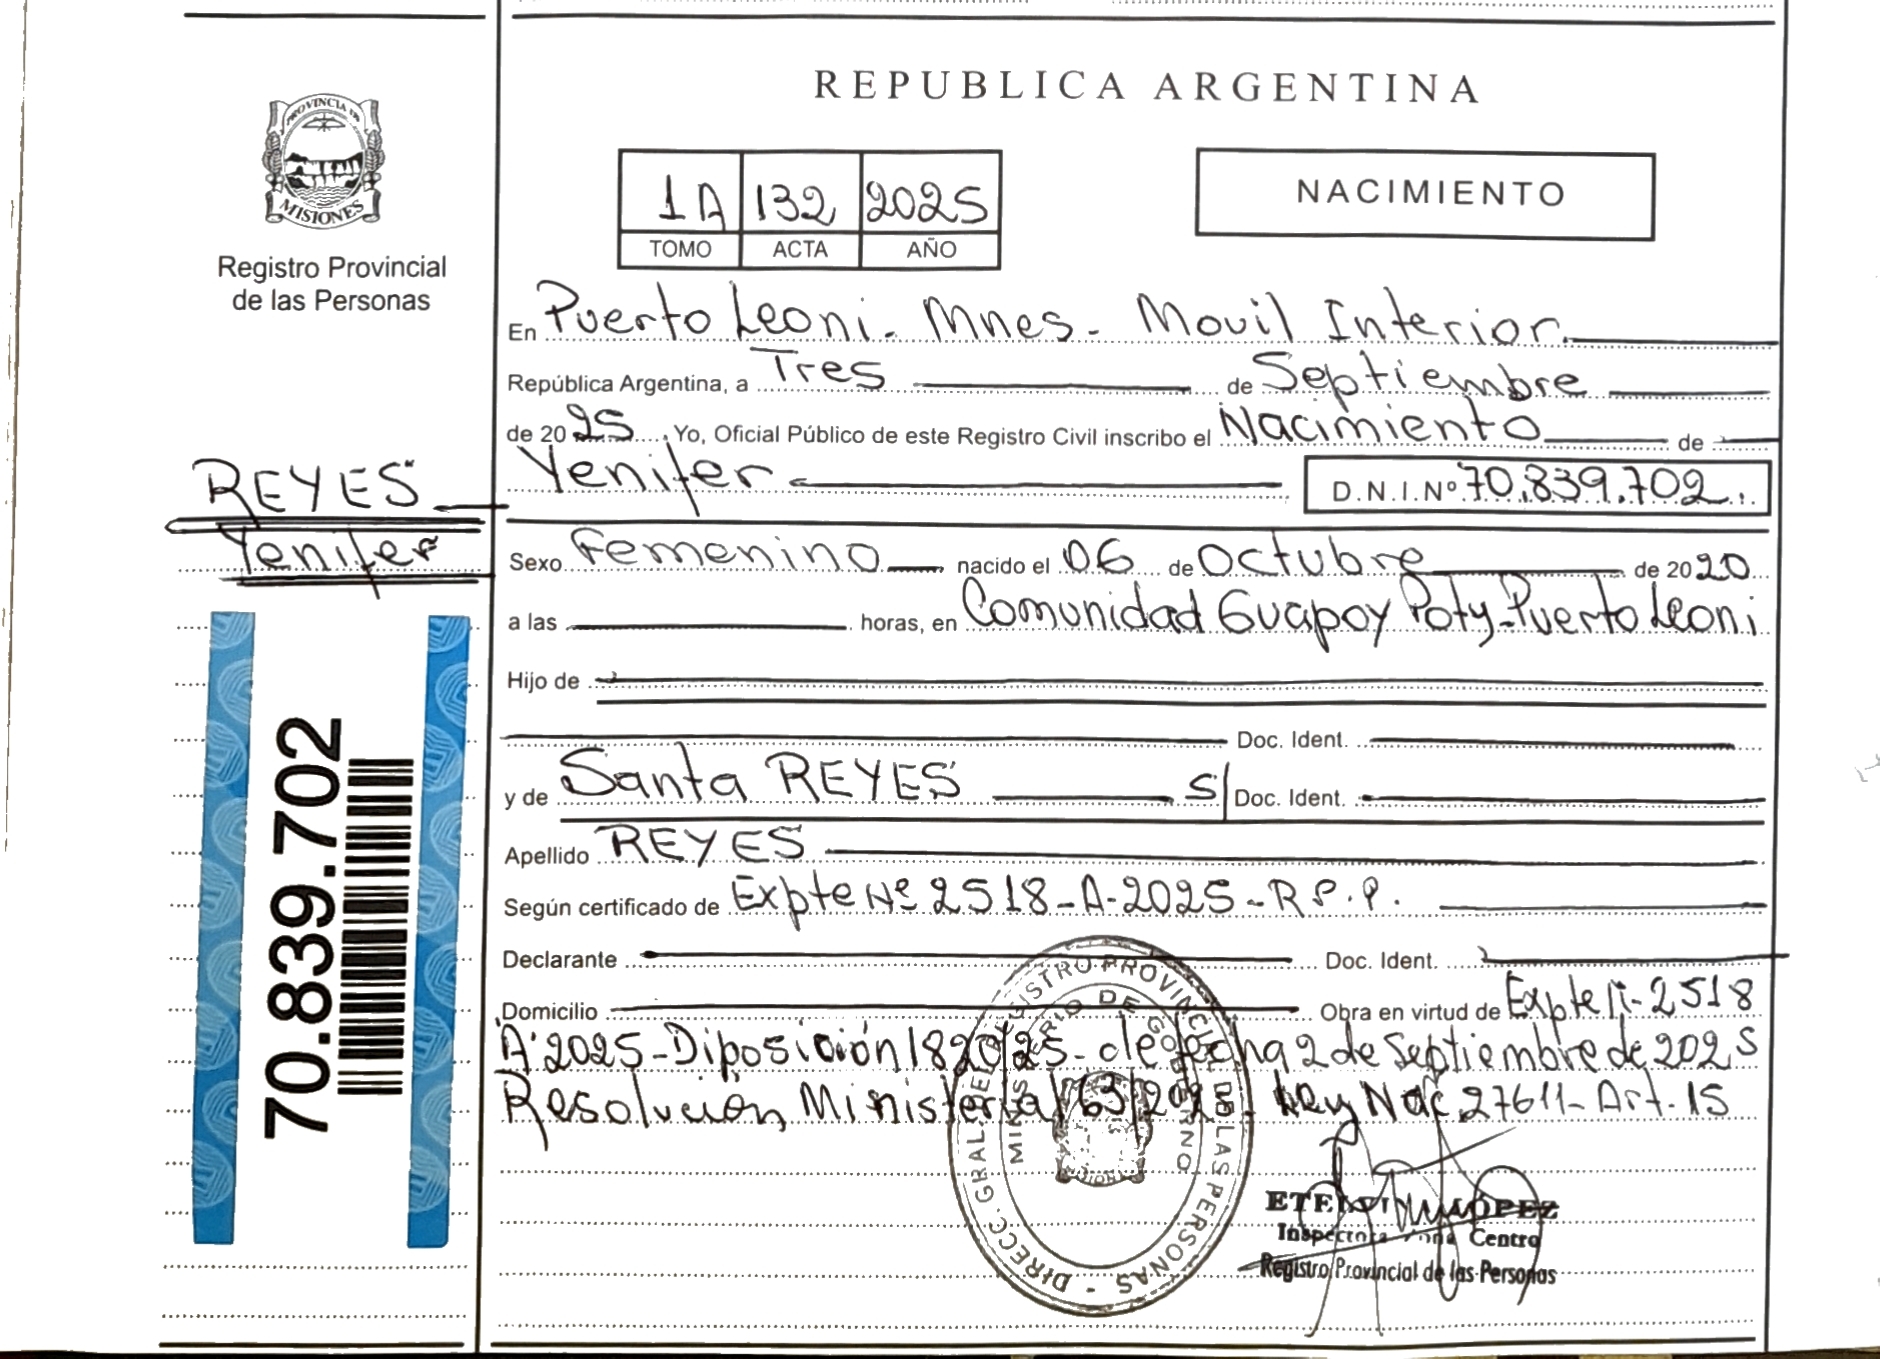 REPUBLICA ARGENTINA
PROVINCIA DE
MISIONES
Registro Provincial
de las Personas
1A 132 2025
TOMO ACTA AÑO
NACIMIENTO
En Puerto Leoni. Mnes. Movil Interior.
República Argentina, a Tres de Septiembre
de 2025, Yo, Oficial Público de este Registro Civil inscribo el Nacimiento de
Yenifer D.N.I.Nº 70.839.702.
REYES
Yenifer
Sexo Femenino nacido el 06 de Octubre de 2020
a las horas, en Comunidad Guapoy Poty-Puerto Leoni
Hijo de
Doc. Ident.
y de Santa REYES S/ Doc. Ident.
Apellido REYES
Según certificado de Expte Nº 2518-A-2025-R.P.P.
Declarante Doc. Ident.
Domicilio Obra en virtud de Expte 2518
A'2025-Diposición 1820/25- de fecha 2 de Septiembre de 2025
Resolución Ministerial 63/2025. Ley Nac 27611-Art. 15
70.839.702
DIRECC. GRAL. DEL REGISTRO PROVINCIAL DE LAS PERSONAS -
MINISTERIO DE GOBIERNO
LÓPEZ
Inspectora Zona Centro
Registro Provincial de las Personas